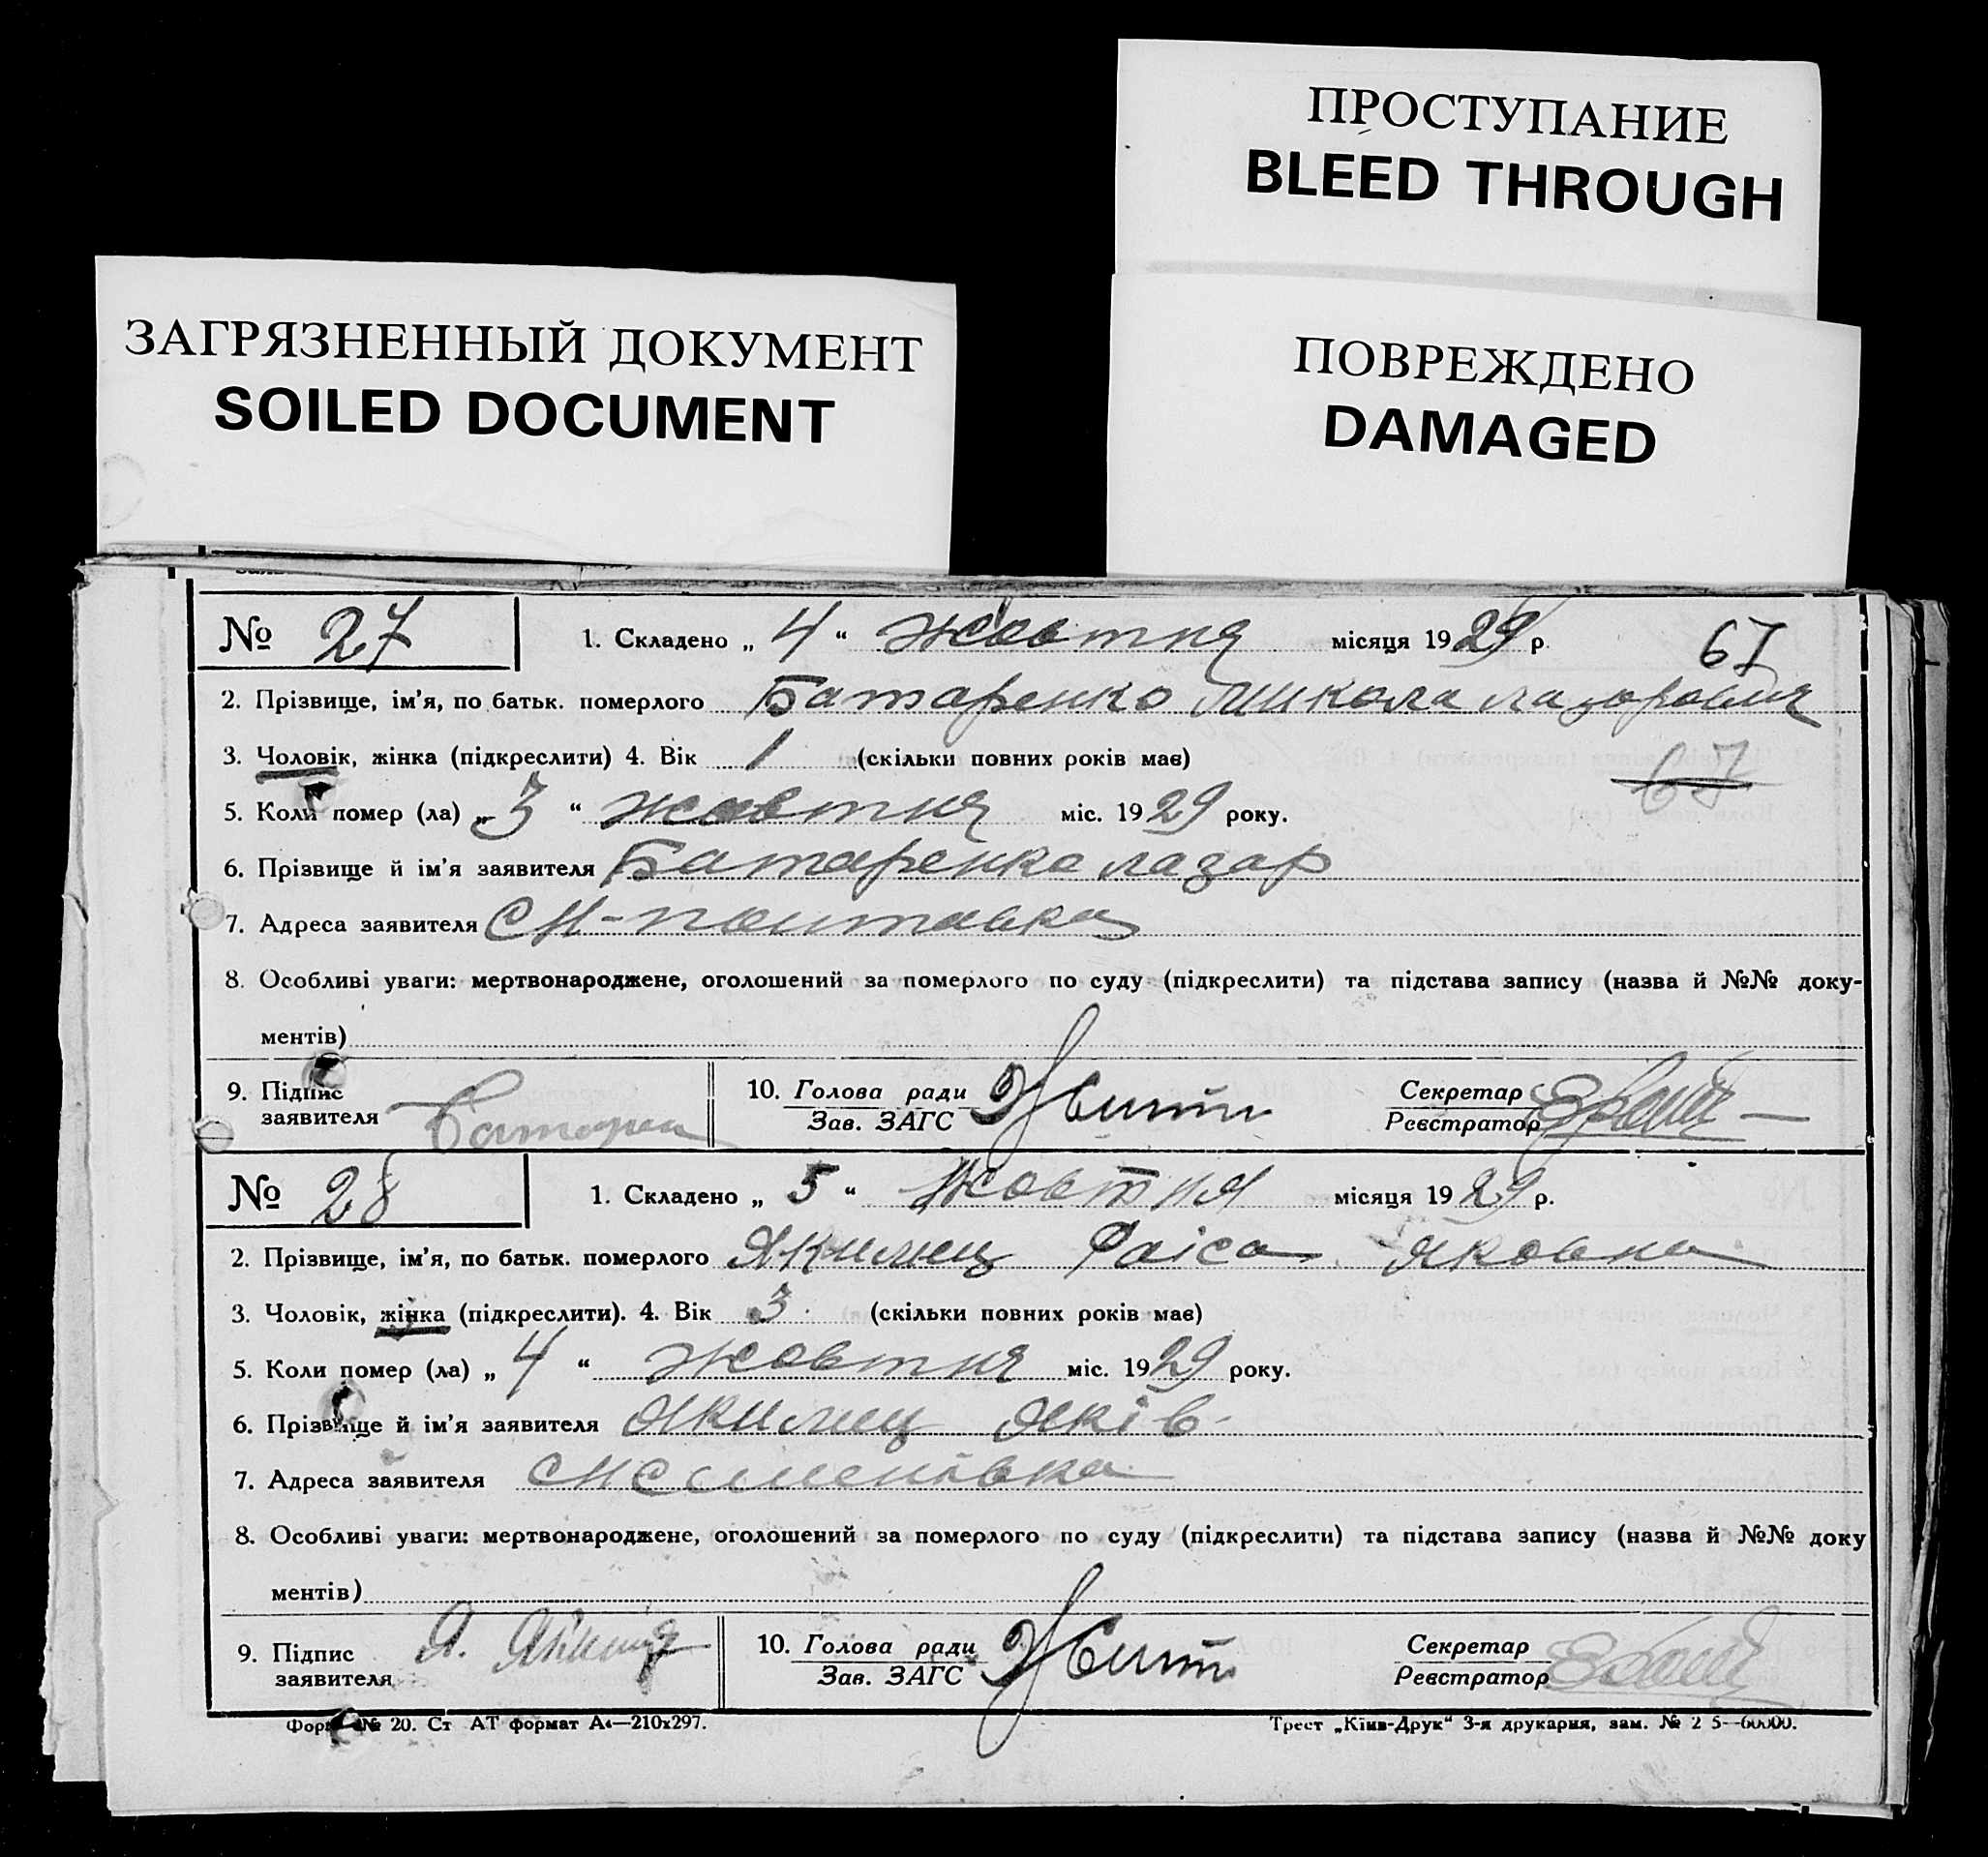 ПРОСТУПАНИЕ
BLEED THROUGH
ЗАГРЯЗНЕННЫЙ ДОКУМЕНТ
SOILED DOCUMENT
ПОВРЕЖДЕНО
DAMAGED
№ 27 1. Складено „ 4 “ жовтня місяця 1929 р. 67
2. Прізвище, ім'я, по батьк. померлого Батаренко Микола Лазорович
3. Чоловік, жінка (підкреслити) 4. Вік 1 (скільки повних років має) 67
5. Коли помер (ла) „ 3 “ жовтня міс. 1929 року.
6. Прізвище й ім'я заявителя Батаренко Лазар
7. Адреса заявителя
8. Особливі уваги: мертвонароджене, оголошений за померлого по суду (підкреслити) та підстава запису (назва й №№ доку-
ментів)
9. Підпис заявителя 10. Голова ради Секретар
Зав. ЗАГС Реєстратор
№ 28 1. Складено „ 5 “ Жовтня місяця 1929 р.
2. Прізвище, ім'я, по батьк. померлого Якимец Раіса Яковна
3. Чоловік, жінка (підкреслити). 4. Вік 3 (скільки повних років має)
5. Коли помер (ла) „ 4 “ жовтня міс. 1929 року.
6. Прізвище й ім'я заявителя Якимец Яків
7. Адреса заявителя
8. Особливі уваги: мертвонароджене, оголошений за померлого по суду (підкреслити) та підстава запису (назва й №№ доку
ментів)
9. Підпис заявителя 10. Голова ради Секретар
Зав. ЗАГС Реєстратор
№ 20. Ст АТ формат А4—210x297. Трест „Київ-Друк“ 3-я друкарня, зам. № 2 5—60000.